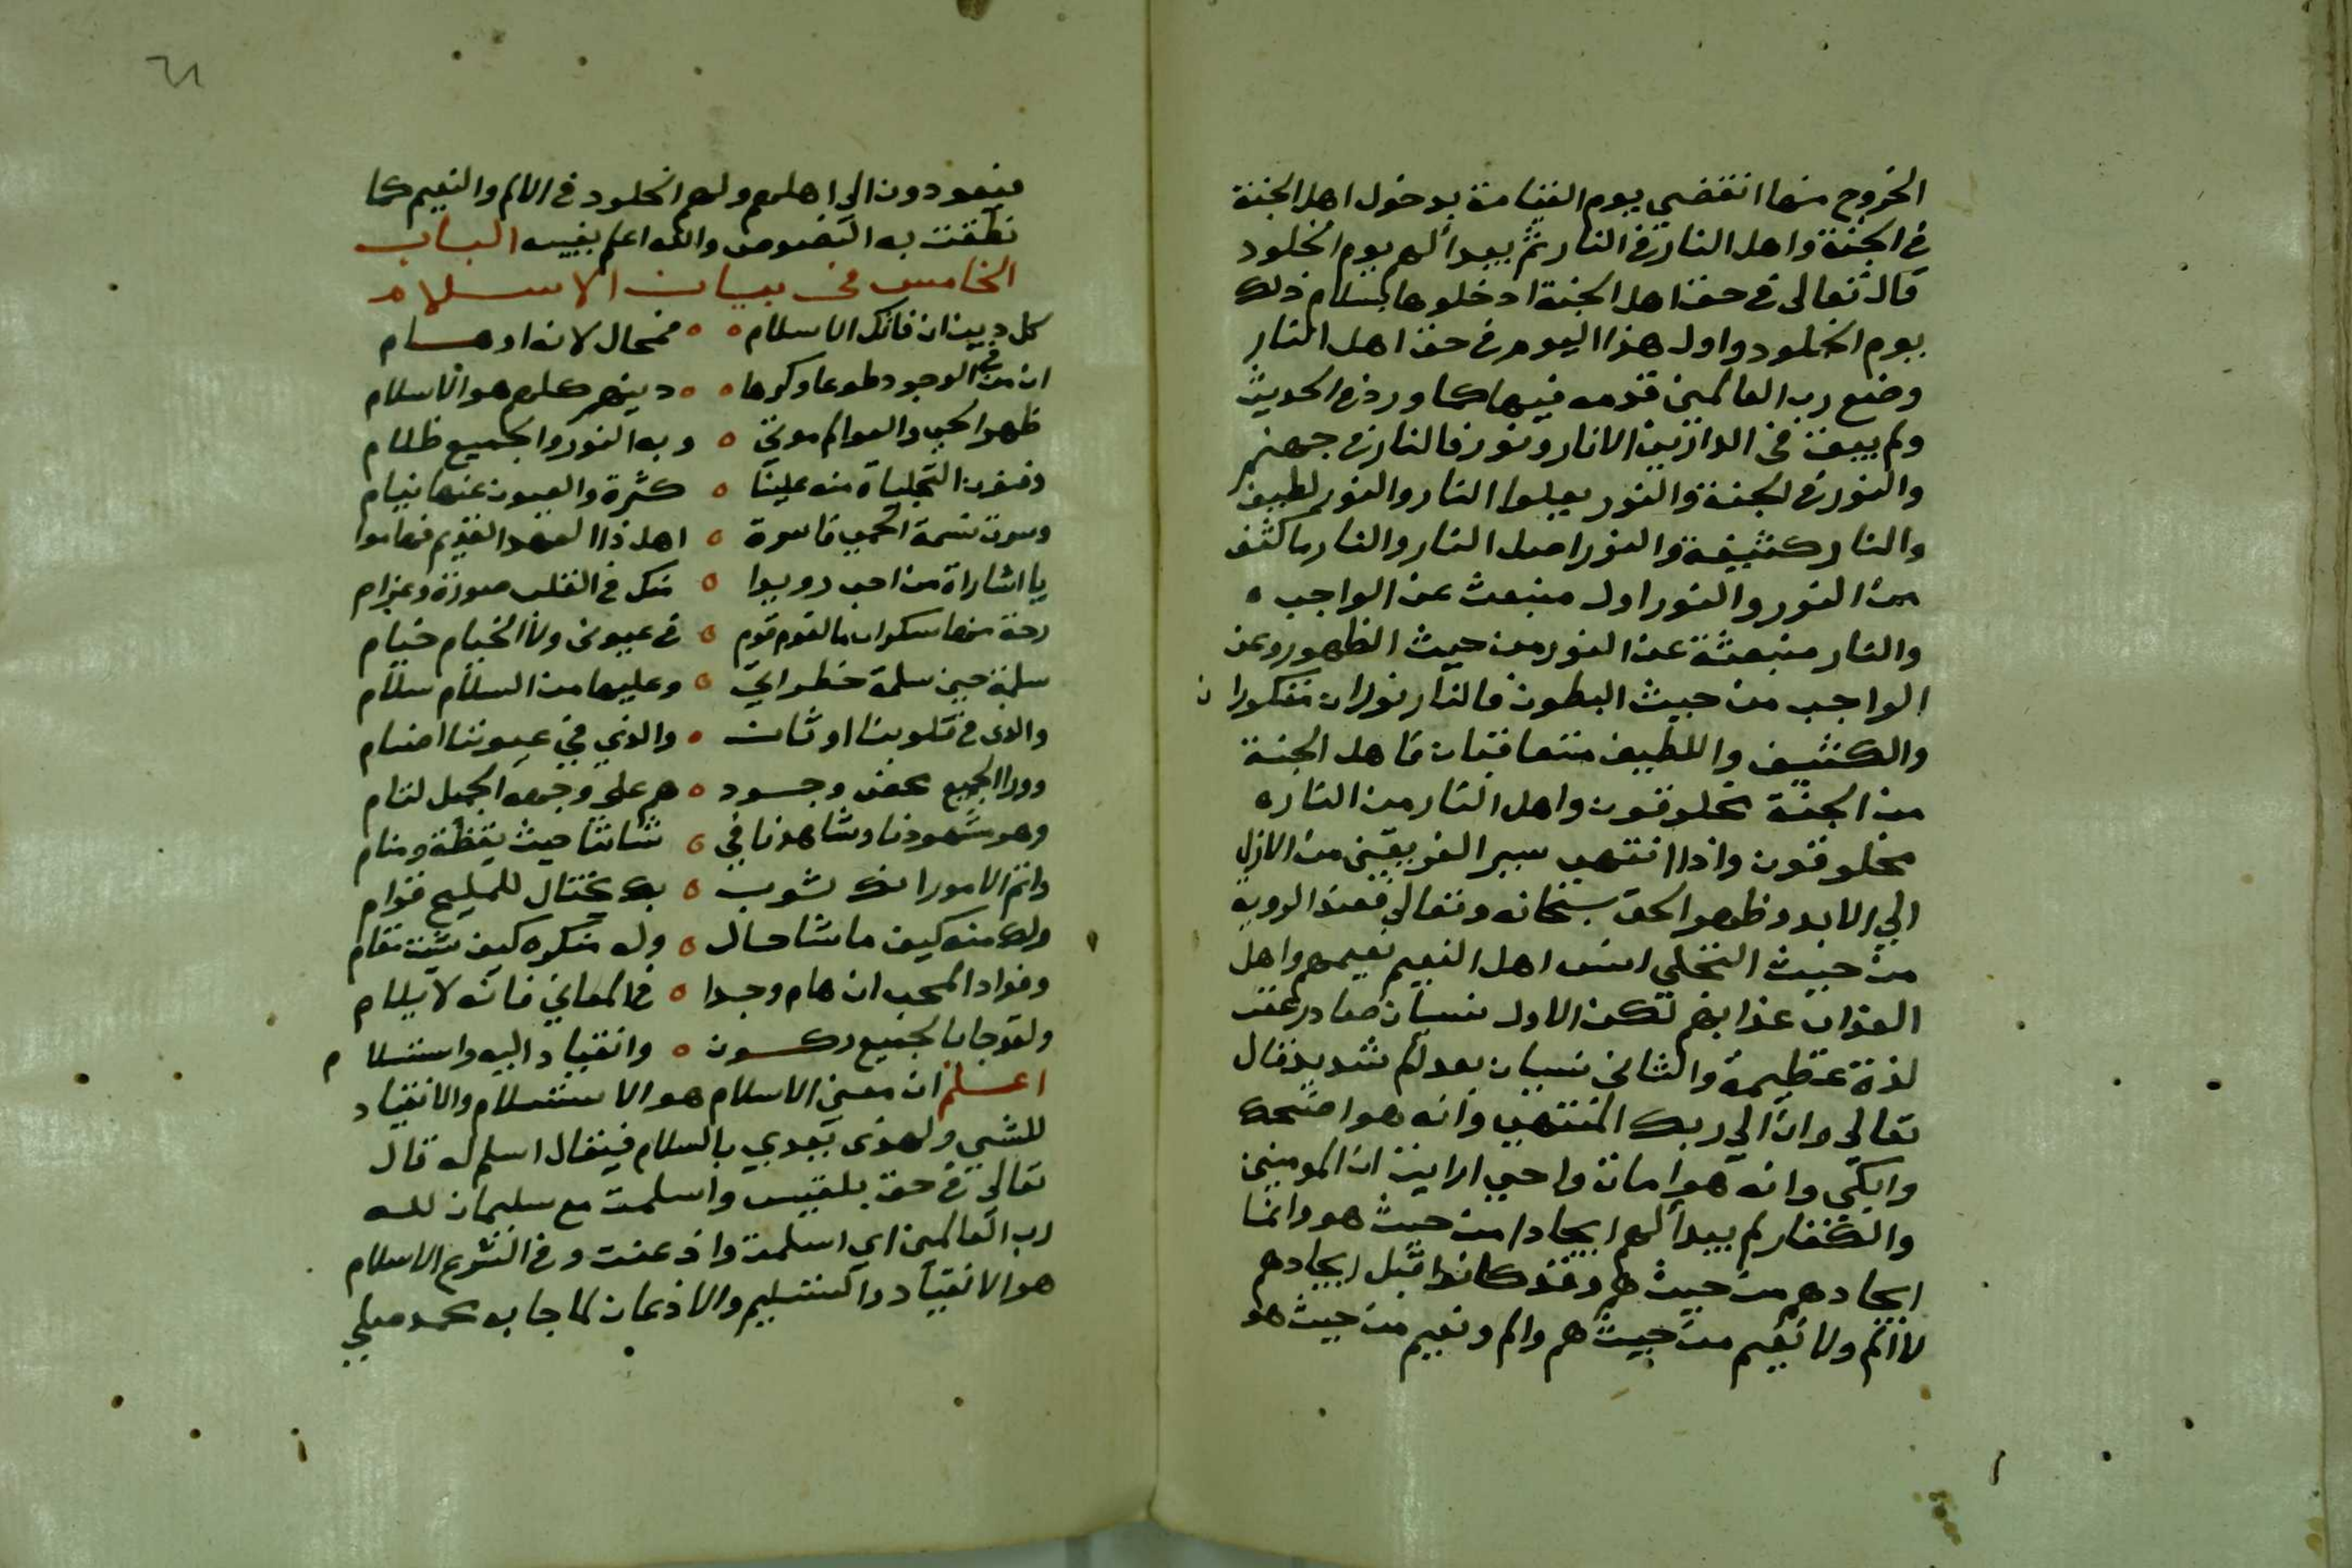 الخروج منها انقضي يوم القيامة بدخول اهل الجنة
في الجنة واهل النار في النار ثم يبدأ لهم يوم الخلود
قال تعالى في حق اهل الجنة ادخلوها بسلام ذلك
يوم الخلود واول هذا اليوم في حق اهل النار
وضع رب العالمين قدمه فيها كما ورد في الحديث
ولم يبق في الدارين الا نار ونور فالنار في جهنم
والنور في الجنة والنور يعلوا النار والنور لطيف
والنار كثيفة والنور اصل النار والنار ما كثف
من النور والنور اول منبعث عن الواجب
والنار منبعثة عن النور من حيث الظهور وعن
الواجب من حيث البطون فالنار نوران
والكثيف واللطيف متعاقبان فاهل الجنة
من الجنة مخلوقون واهل النار من النار
مخلوقون واذا انتهي سير الفريقين من الازل
الي الابد وظهر الحق سبحانه وتعالي فعند الروية
من حيث التجلي انس اهل النعيم نعيمهم واهل
العذاب عذابهم لكن الاول نسيان صادر عن
لذة عظيمة والثاني نسيان بعد الم شديد قال
تعالي وان الي ربك المنتهي وانه هو اضحك
وابكي وانه هو امات واحيي ارايت ان المومنين
والكفار لم يبدأ لهم ايجادا من حيث هو وانما
ايجادهم من حيث هم وقد كانوا قبل ايجادهم
لا الم ولا نعيم من حيث هم والم ونعيم من حيث هو
٦١
فيعودون الي اهلهم ولهم الخلود في الالم والنعيم كما
نطقت به النصوص والله اعلم بغيبه الباب
الخامس في بيان الاسلام
كل دين ان فاتك الاسلام ه ه فمحال لانه اوهام
ان من في الوجود طوعا وكرها ه ه دينهم كلهم هو الاسلام
ظهر الحي والعوالم موتي ه وبه النور والجميع ظلام
وفنون التجليات منه علينا ه كثرة والعيون عنها نيام
وسرت نسمة الحمي فاسرة ه اهل ذا العهد القديم فهاموا
يا اشارات من احب رويدا ه منك في القلب صورة وغرام
رحت منها سكران ما القوم قوم ه في عيوني ولا الخيام خيام
سلمت حين سلمت خطراتي ه وعليها من السلام سلام
والذي في قلوبنا اوثان ه والذي في عيوننا اصنام
وورا الجميع محض وجود ه هم علي وجهه الجميل لثام
وهو مشهودنا وشاهدنا في ه شاننا حيث يقظة ومنام
واتم الامور انك ثوب ه بك يختال للمليح قوام
ولك منه كيف ما شا حال ه وله منك كيف شيت مقام
وفواد المحب ان هام وجدا ه في المعاني فانه لا يلام
ولقد جا بالجميع ركون ه وانقياد اليه واستسلام
اعلم ان معني الاسلام هو الاستسلام والانقياد
للشي ولهذي يعدي باللام فيقال اسلم له قال
تعالي في حق بلقيس واسلمت مع سليمان لله
رب العالمين اي اسلمت واذعنت وفي الشرع الاسلام
هو الانقياد والتسليم والاذعان لما جا به محمد صلي